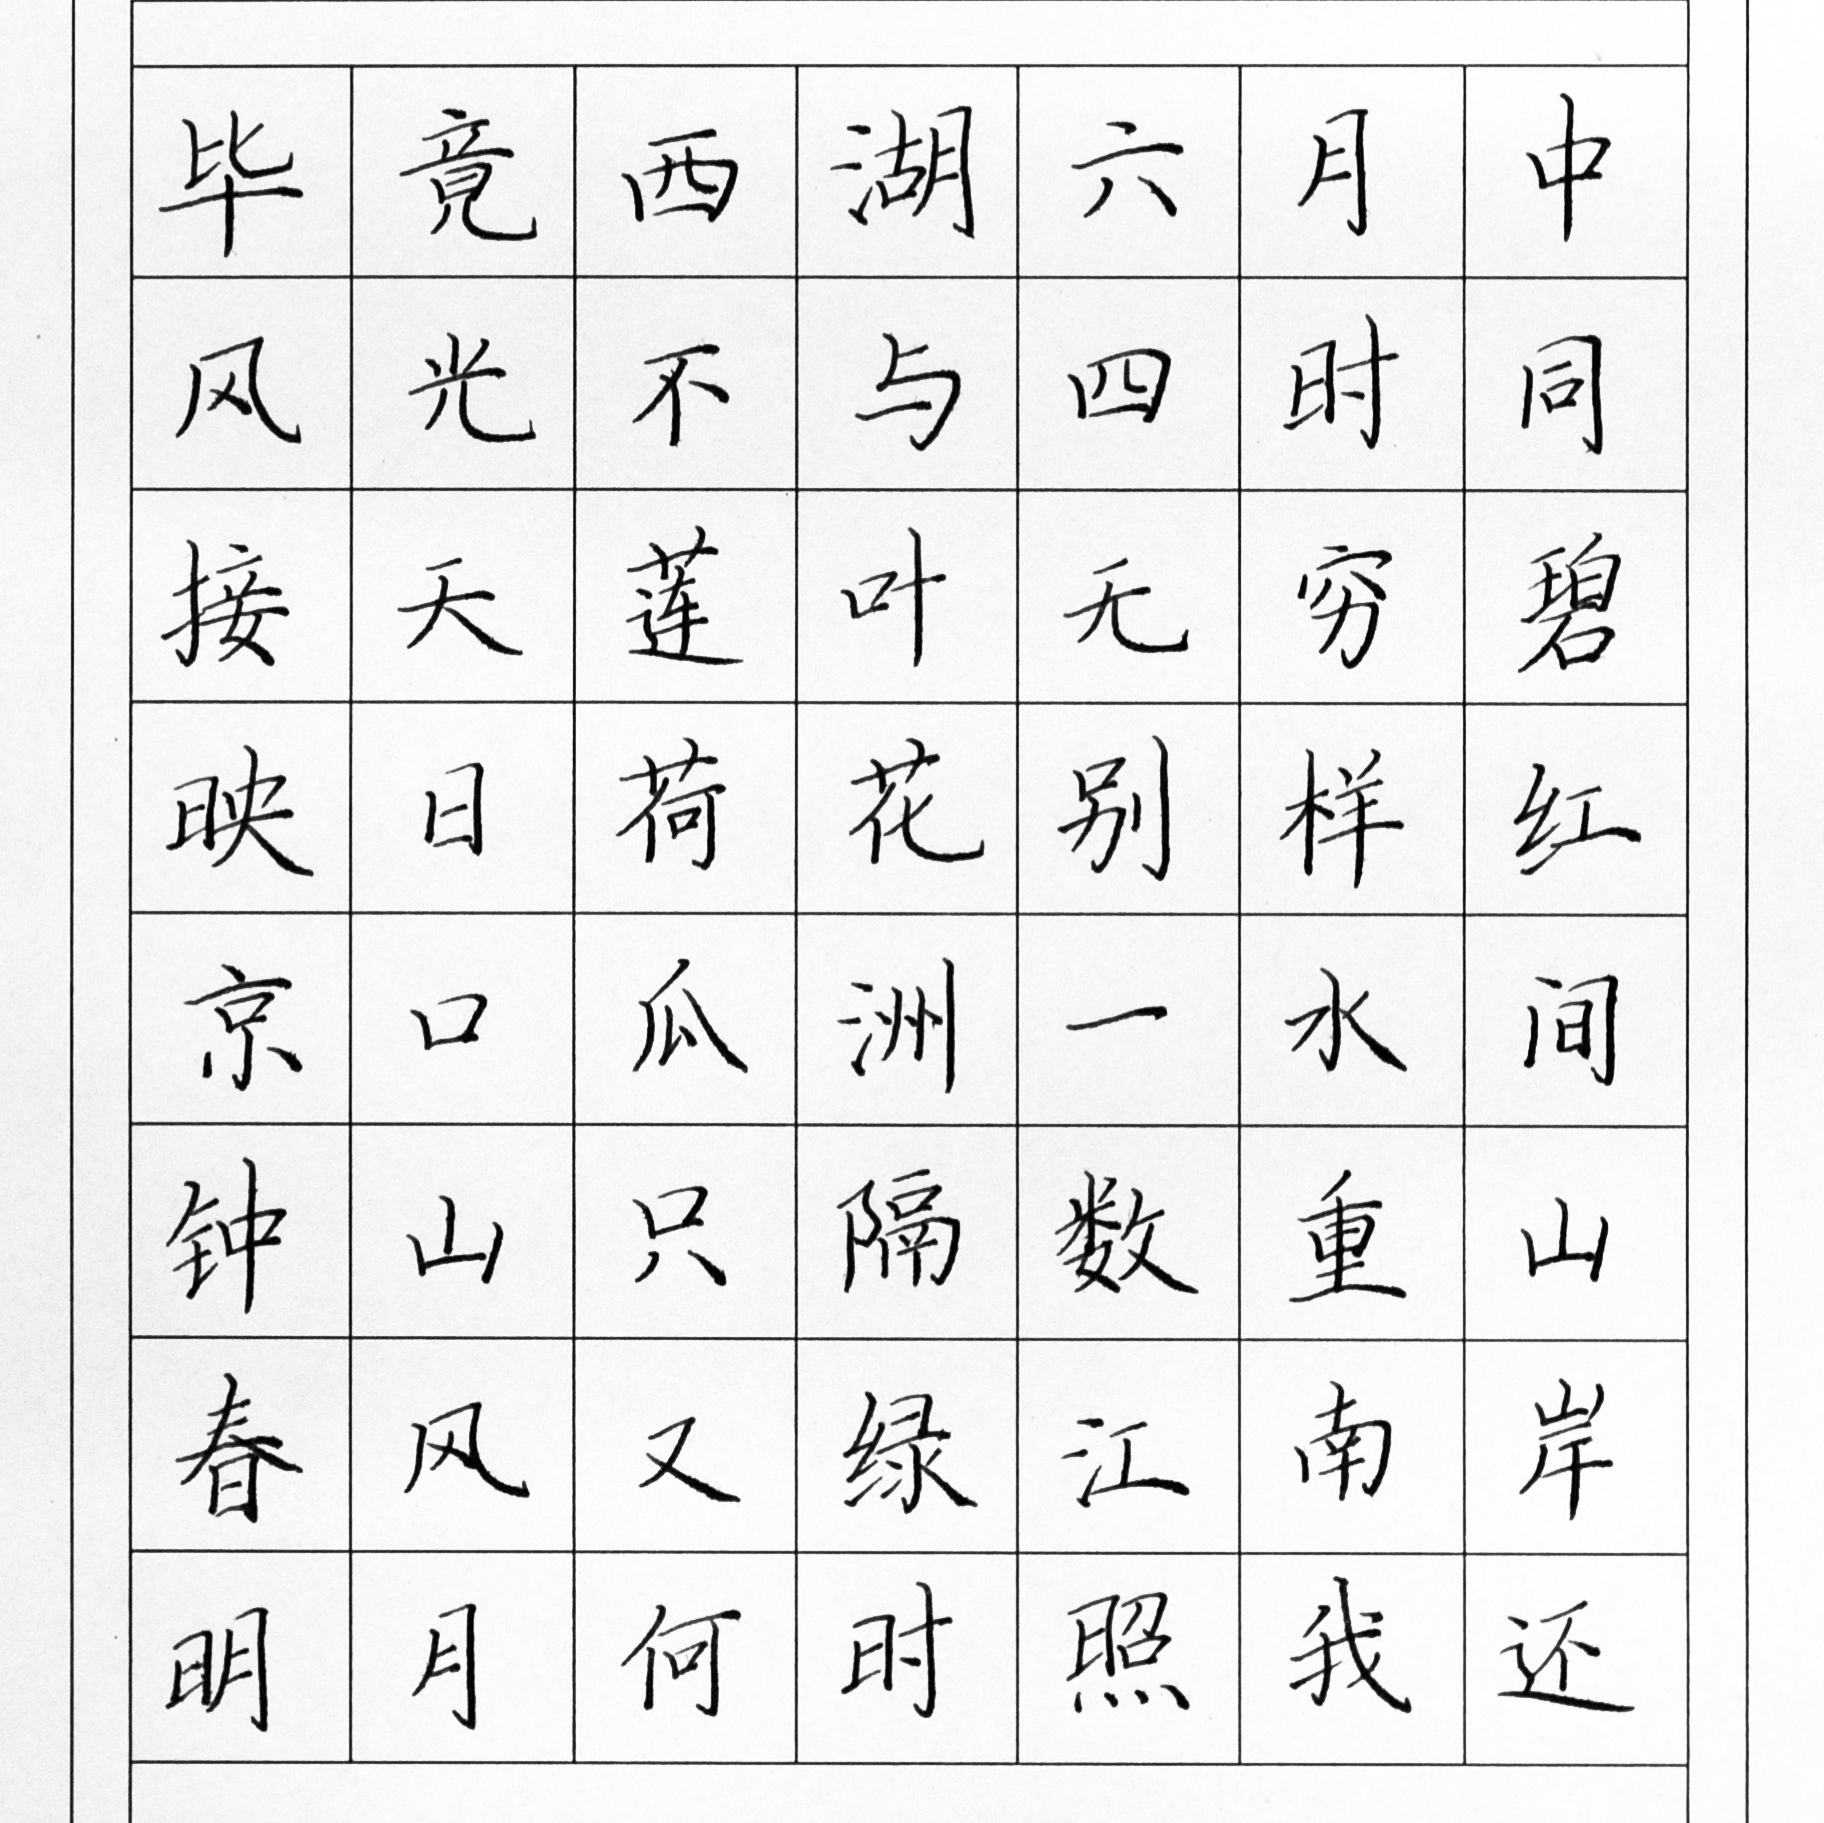 毕竟西湖六月中
风光不与四时同
接天莲叶无穷碧
映日荷花别样红
京口瓜洲一水间
钟山只隔数重山
春风又绿江南岸
明月何时照我还